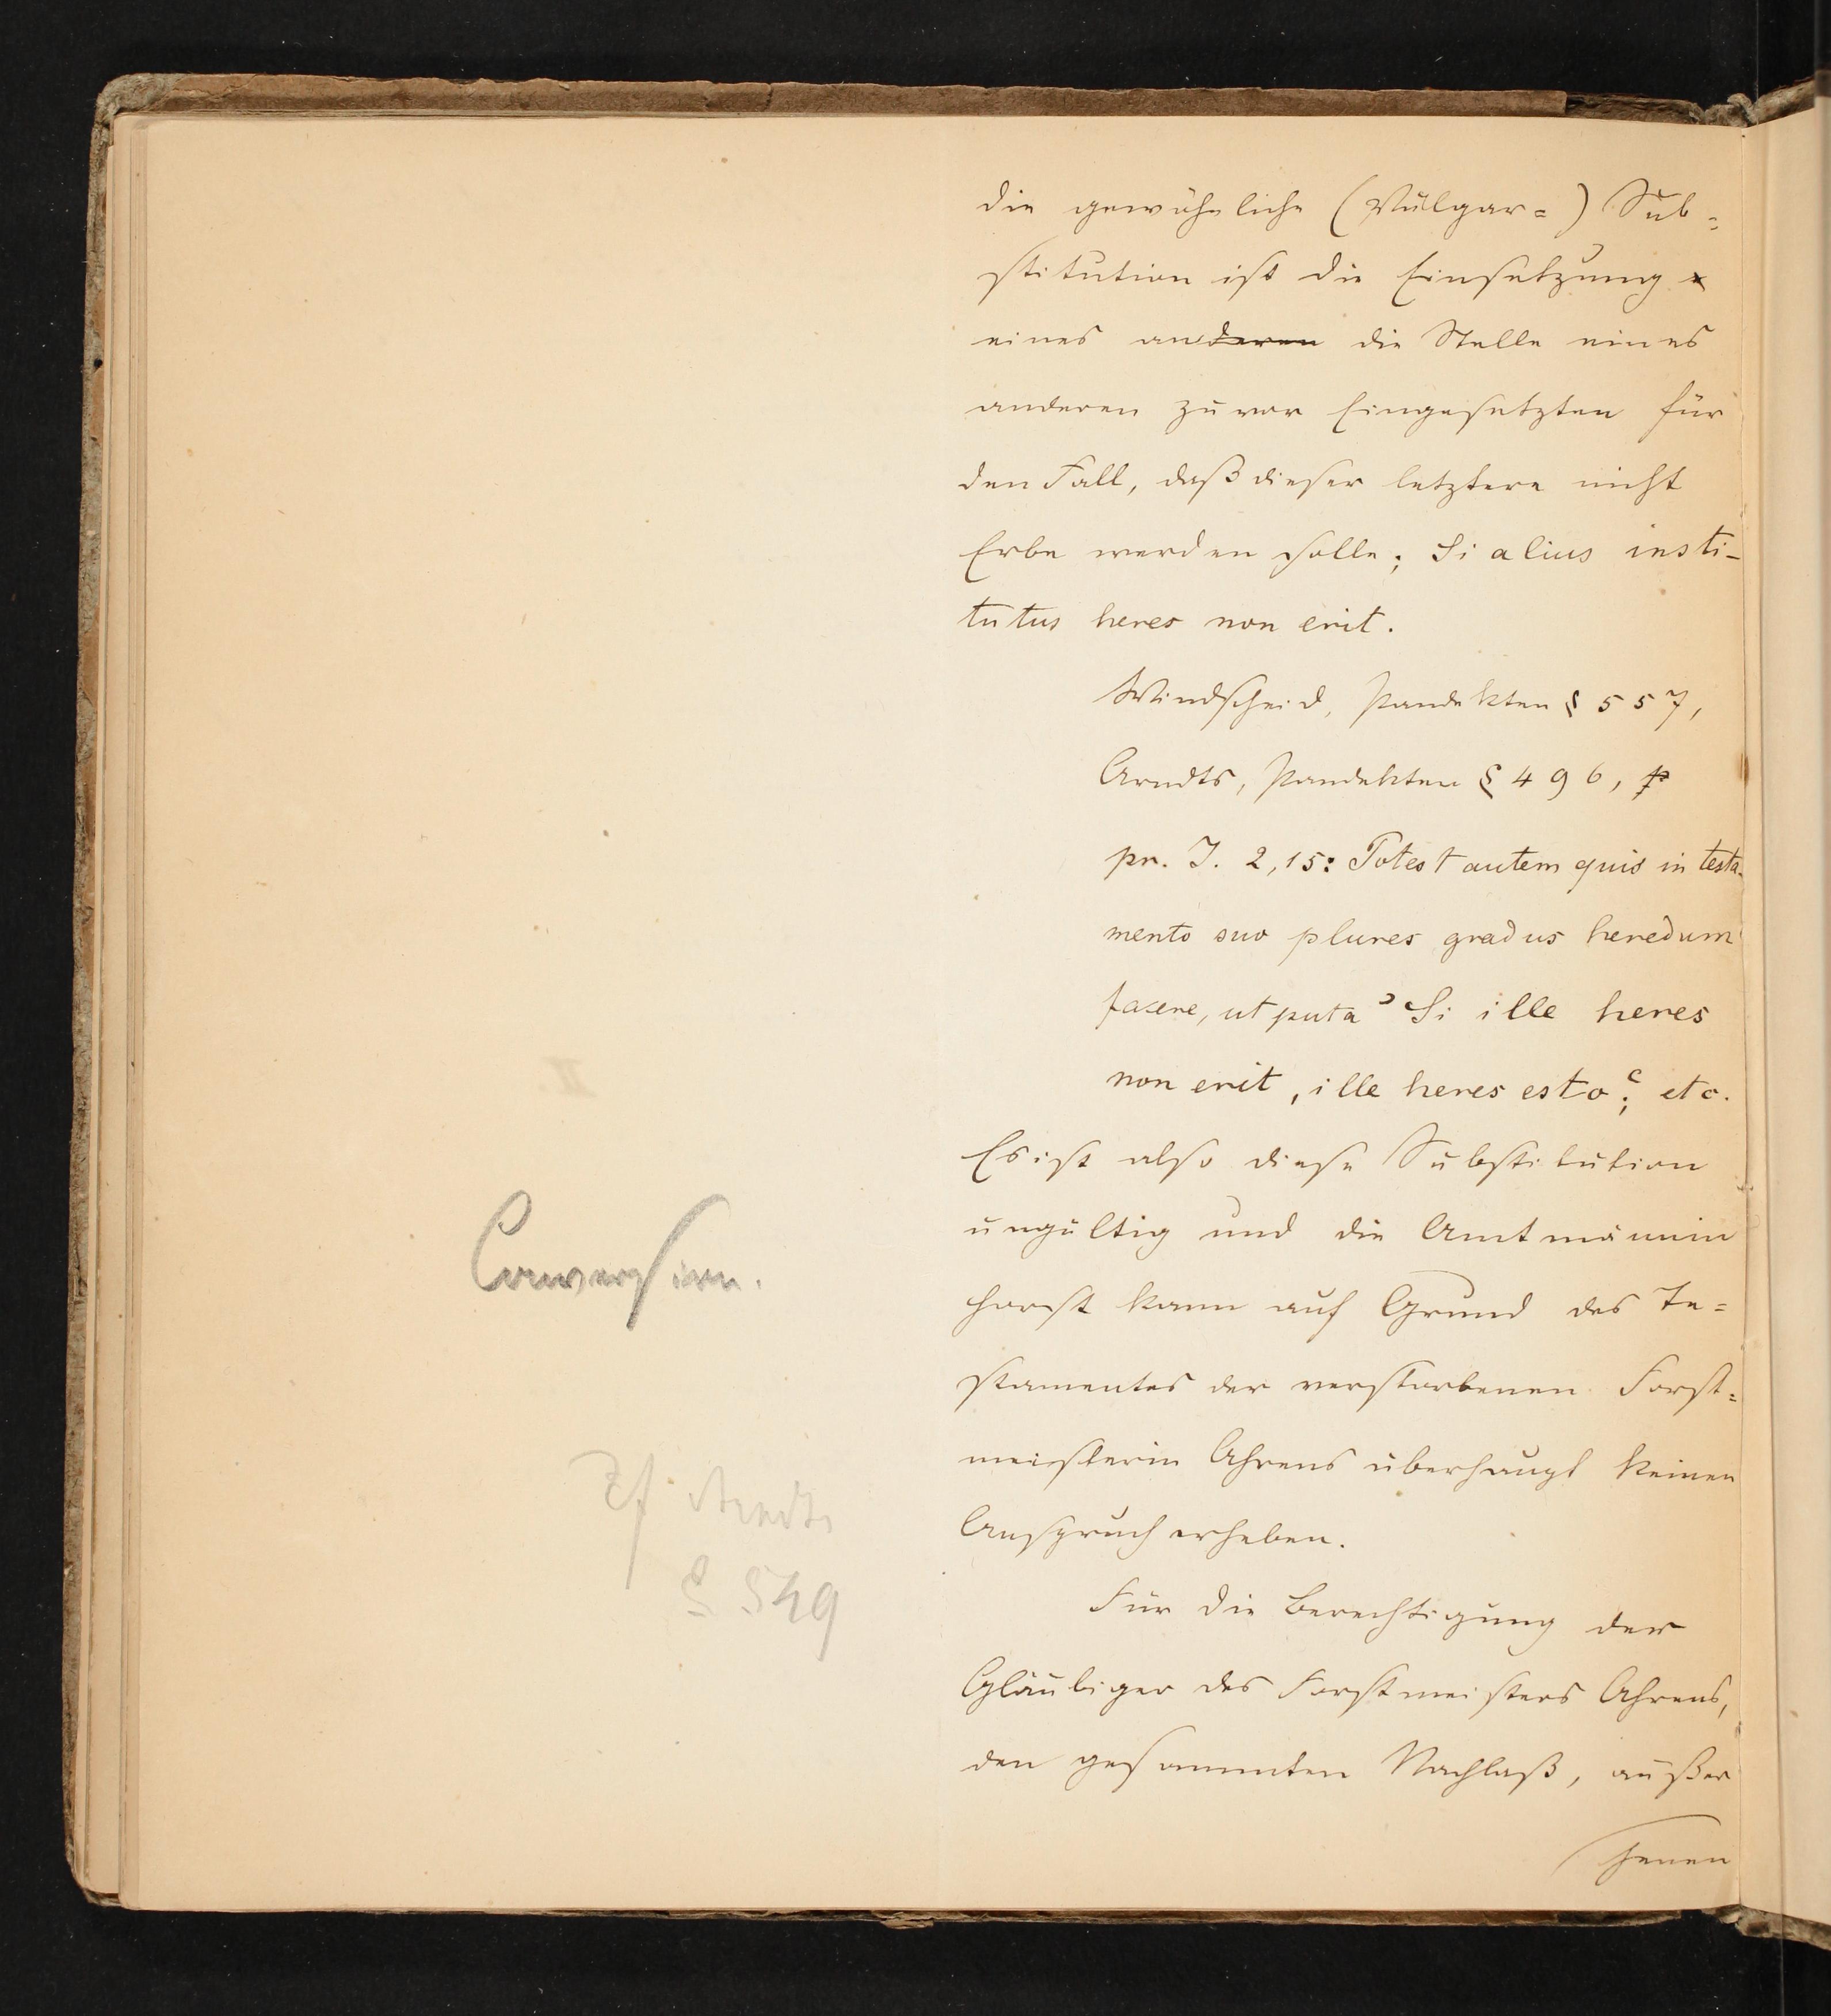 die gewöhnliche (Vulgar=) Sub=
stitution ist die Einsetzung
eines anderen die Stelle eines
anderen zuvor Eingesetzten für
den Fall, daß dieser letztere nicht
Erbe werden solle; Si alius insti-
tutus heres non erit.
Windscheid, Pandekten § 557,
Arndts, Pandekten § 496, p
pr. J. 2,15: Potest autem quis in testa-
mento suo plures gradus heredum
facere, ut puta " Si ille heres
non erit, ille heres esto "; etc.
Es ist also diese Substitution
ungültig und die Amtmännin
Horst kann auf Grund des Te=
Conversion.
stamentes der verstorbenen Forst=
meisterin Ahrens überhaupt keinen
Anspruch erheben.
Arndts
§ 549
Für die Berechtigung der
Gläubiger des Forstmeisters Ahrens,
den gesammten Nachlaß, außer
jenen